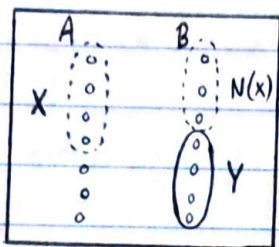 A B
X N(x)
Y